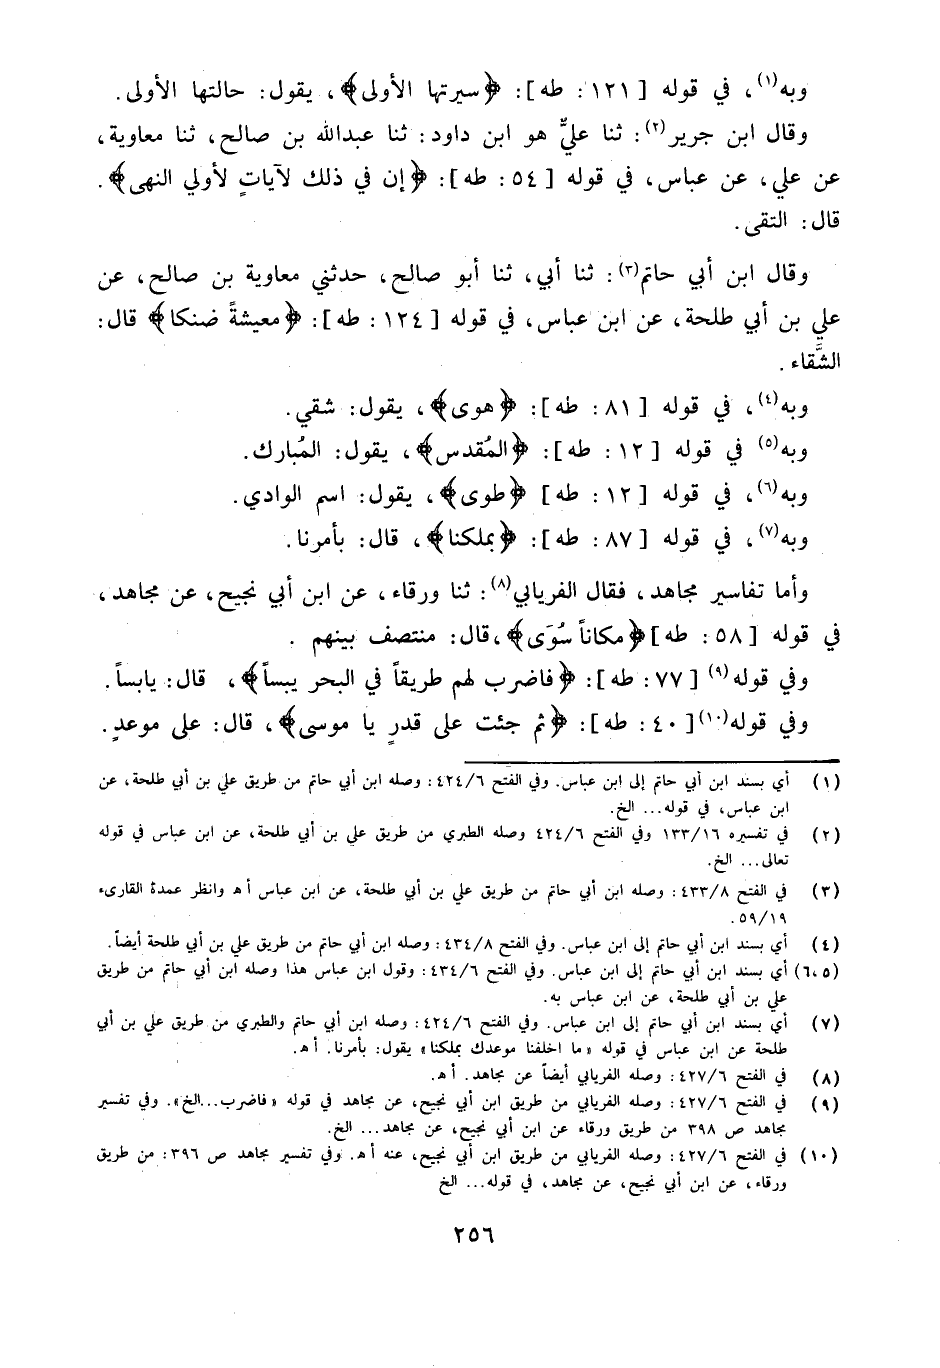 وبه(١)، في قوله [١٢١: طه]: ﴿سيرتها الأولى﴾، يقول: حالتها الأولى.
وقال ابن جرير(٢): ثنا عليٌّ هو ابن داود: ثنا عبدالله بن صالح، ثنا معاوية،
عن علي، عن عباس، في قوله [٥٤: طه]: ﴿إن في ذلك لآياتٍ لأولي النهى﴾.
قال: التقى.
وقال ابن أبي حاتم(٣): ثنا أبي، ثنا أبو صالح، حدثني معاوية بن صالح، عن
علي بن أبي طلحة، عن ابن عباس، في قوله [١٢٤: طه]: ﴿معيشةً ضنكا﴾ قال:
الشَّقاء.
وبه(٤)، في قوله [٨١: طه]: ﴿هوى﴾، يقول: شقي.
وبه(٥) في قوله [١٢: طه]: ﴿المُقدس﴾، يقول: المُبارك.
وبه(٦)، في قوله [١٢: طه] ﴿طوى﴾، يقول: اسم الوادي.
وبه(٧)، في قوله [٨٧: طه]: ﴿بملكنا﴾، قال: بأمرنا.
وأما تفاسير مجاهد، فقال الفريابي(٨): ثنا ورقاء، عن ابن أبي نجيح، عن مجاهد،
في قوله [٥٨: طه] ﴿مكاناً سُوَى﴾، قال: منتصف بينهم.
وفي قوله(٩) [٧٧: طه]: ﴿فاضرب لهم طريقاً في البحر يبساً﴾، قال: يابساً.
وفي قوله(١٠) [٤٠: طه]: ﴿ثم جئت على قدرٍ يا موسى﴾، قال: على موعدٍ.
(١) أي بسند ابن أبي حاتم إلى ابن عباس. وفي الفتح ٤٢٤/٦: وصله ابن أبي حاتم من طريق علي بن أبي طلحة، عن
ابن عباس، في قوله... الخ.
(٢) في تفسيره ١٣٣/١٦ وفي الفتح ٤٢٤/٦ وصله الطبري من طريق علي بن أبي طلحة، عن ابن عباس في قوله
تعالى... الخ.
(٣) في الفتح ٤٣٣/٨: وصله ابن أبي حاتم من طريق علي بن أبي طلحة، عن ابن عباس أ هـ وانظر عمدة القارىء
٥٩/١٩.
(٤) أي بسند ابن أبي حاتم إلى ابن عباس. وفي الفتح ٤٣٤/٨: وصله ابن أبي حاتم من طريق علي بن أبي طلحة أيضاً.
(٥،٦) أي بسند ابن أبي حاتم إلى ابن عباس. وفي الفتح ٤٣٤/٦: وقول ابن عباس هذا وصله ابن أبي حاتم من طريق
علي بن أبي طلحة، عن ابن عباس به.
(٧) أي بسند ابن أبي حاتم إلى ابن عباس. وفي الفتح ٤٢٤/٦: وصله ابن أبي حاتم والطبري من طريق علي بن أبي
طلحة عن ابن عباس في قوله «ما اخلفنا موعدك بملكنا» يقول: بأمرنا. أ هـ.
(٨) في الفتح ٤٢٧/٦: وصله الفريابي أيضاً عن مجاهد. أ هـ.
(٩) في الفتح ٤٢٧/٦: وصله الفريابي من طريق ابن أبي نجيح، عن مجاهد في قوله «فاضرب...الخ». وفي تفسير
مجاهد ص ٣٩٨ من طريق ورقاء عن ابن أبي نجيح، عن مجاهد... الخ.
(١٠) في الفتح ٤٢٧/٦: وصله الفريابي من طريق ابن أبي نجيح، عنه أ هـ. وفي تفسير مجاهد ص ٣٩٦: من طريق
ورقاء، عن ابن أبي نجيح، عن مجاهد، في قوله... الخ
٢٥٦